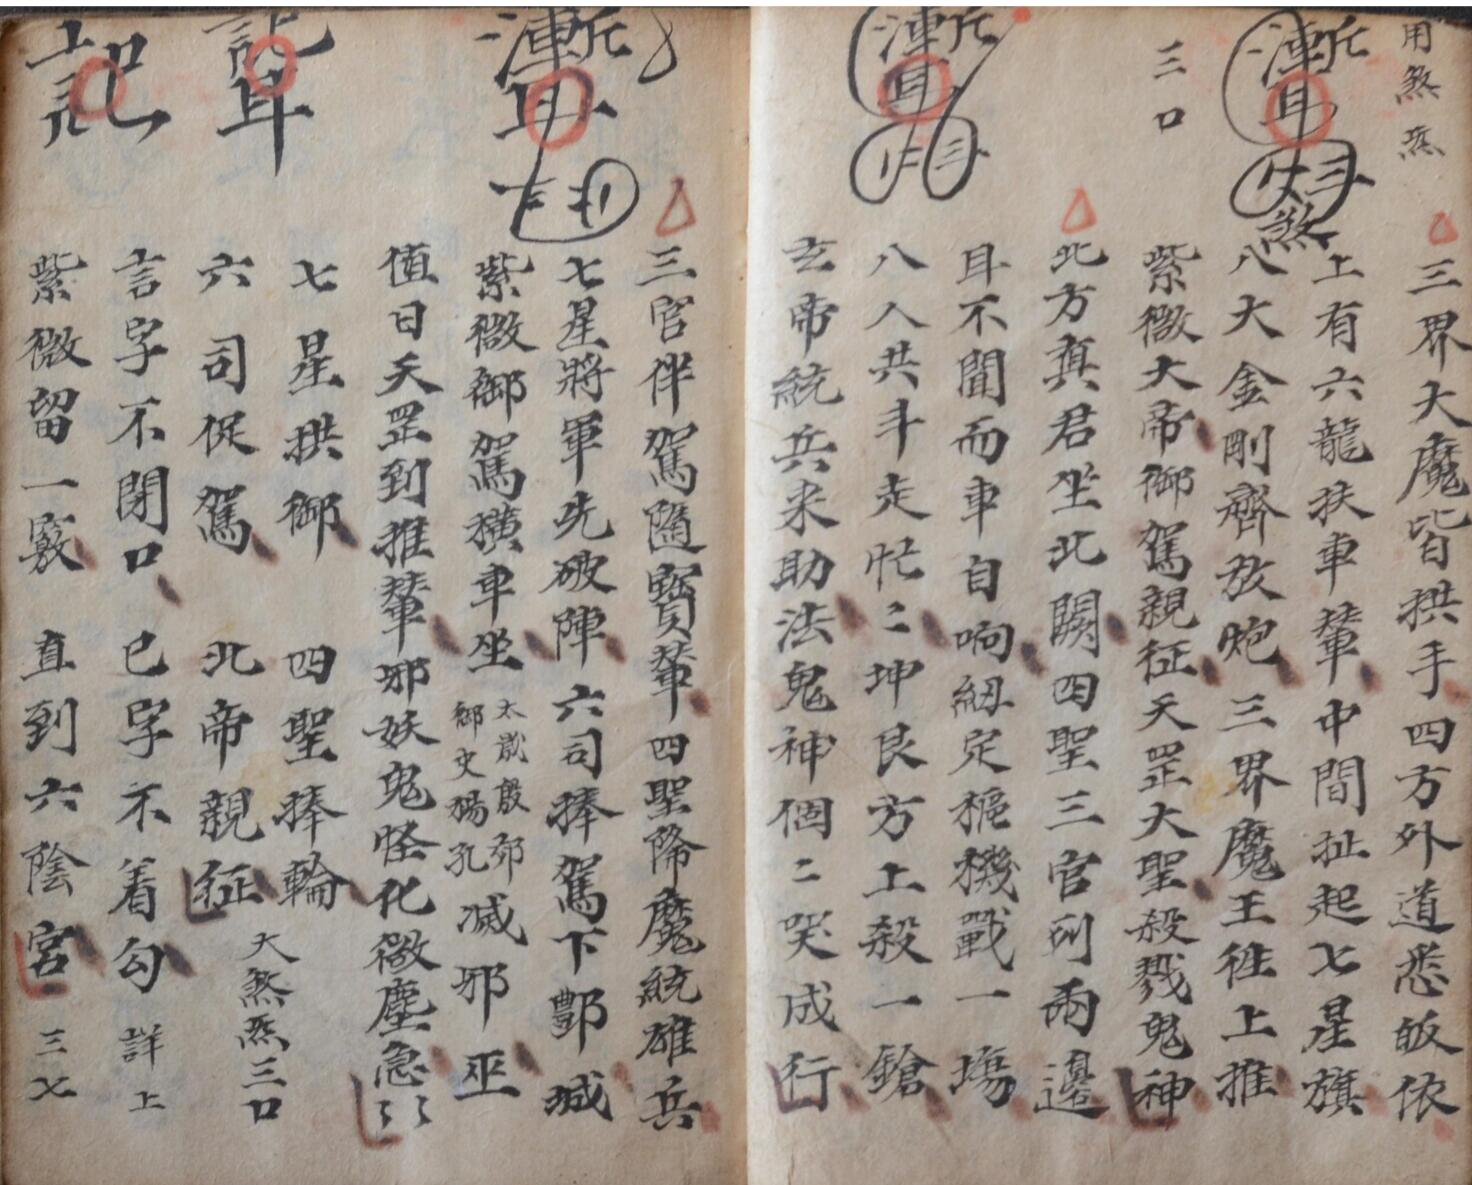 用煞炁
三界大魔皆拱手四方外道悉皈依
上有六龍扶車輦中間扯起七星旗
煞
八大金剛齊放炮三界魔王往上推
三口
紫微大帝御駕親征天罡大聖殺戮鬼神
北方真君坐北闕四聖三官列兩邊
耳不聞而車自响紐定樞機戰一塲
八人共斗走忙〻坤艮方上殺一鎗
玄帝統兵来助法鬼神個〻哭成行
三官伴駕隨寶輦四聖降魔統雄兵
七星將軍先破陣六司捧駕下酆城
紫微御駕橫車坐太歲殷郊御史楊孔滅邪巫
值日天罡到推輦邪妖鬼怪化微塵急〻
七星拱御四聖捧輪
六司促駕北帝親征大煞炁三口
言字不閉口已字不着勾詳上
紫微留一竅直到六陰宮三七